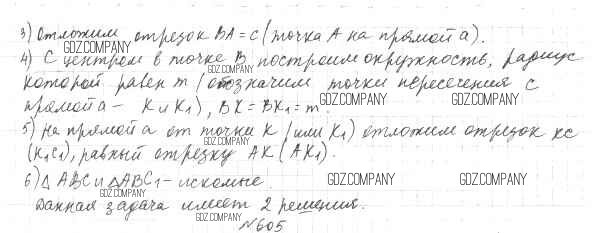 3) Отложим отрезок BA = c (точка A на прямой a).
GDZ.COMPANY
4) С центром в точке B построим окружность, радиус
GDZ.COMPANY
которой равен m (обозначим точки пересечения с
прямой a - K и K1), BK = BK1 = m.
GDZ.COMPANY GDZ.COMPANY GDZ.COMPANY
5) На прямой a от точки K (или K1) отложим отрезок KC
(K1C1), равный отрезку AK (AK1).
GDZ.COMPANY
6) △ABC и △ABC1 - искомые.
GDZ.COMPANY GDZ.COMPANY GDZ.COMPANY
Данная задача имеет 2 решения.
GDZ.COMPANY
№605